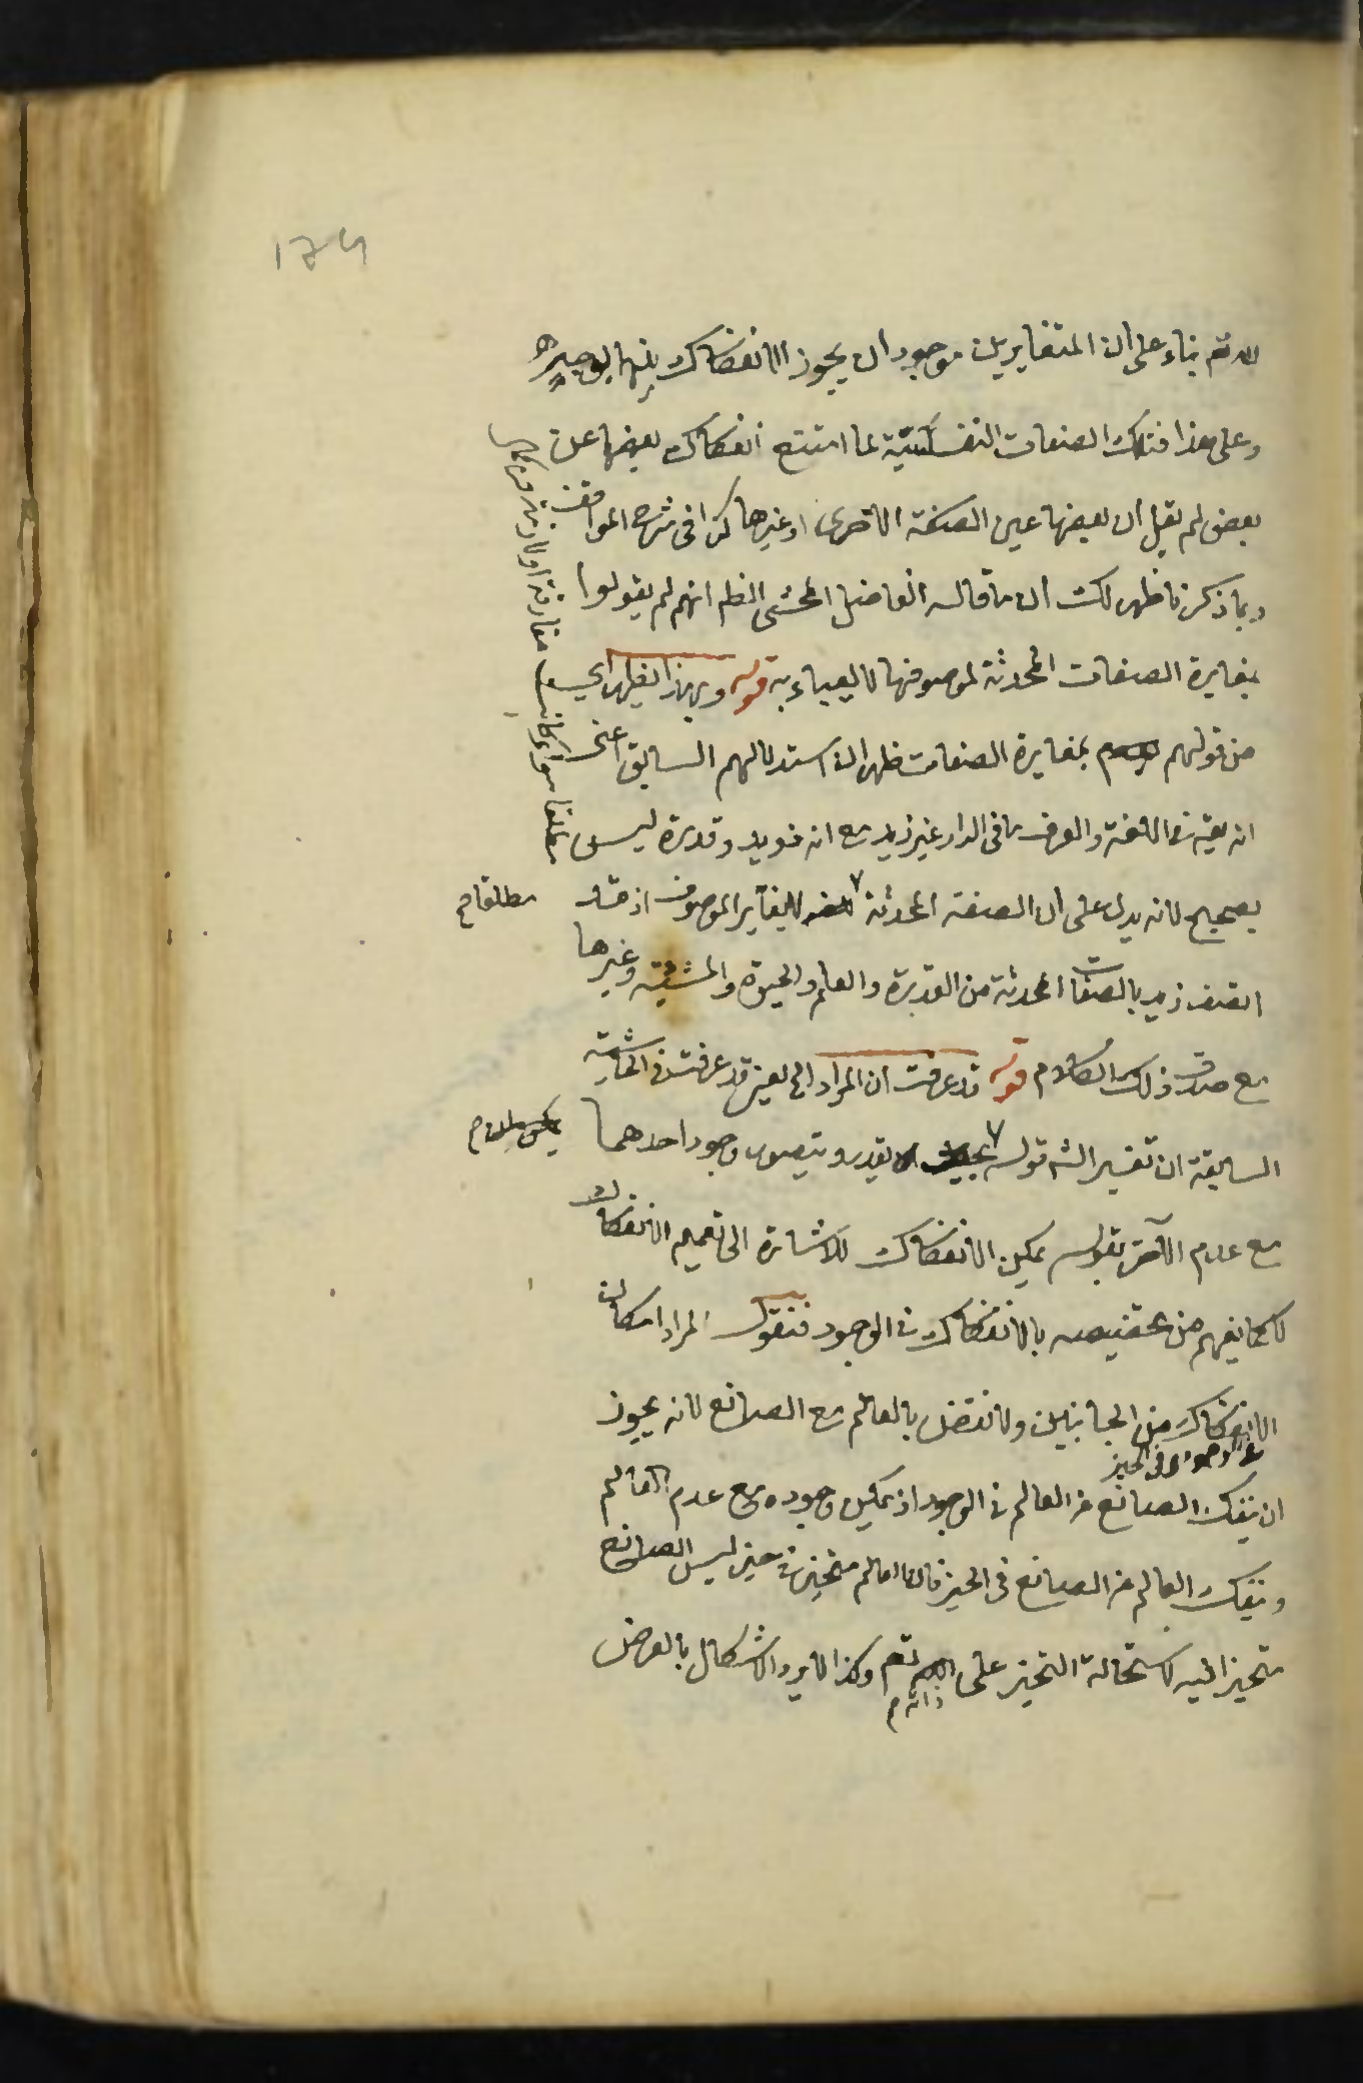 لله تعم بناء على ان المتغايرين موجودان يجوز الانفكاك بينهما بوجه
وعلى هذا فتلك الصفات النفسية لما امتنع انفكاك بعضها عن
بعض لم يقل ان بعضها عين الصفة الاخرى او غيرها كذا فى شرح المواقف
وبما ذكرنا ظهر لك ان ما قاله الفاضل المحشى الظم انهم لم يقولوا
بمغايرة الصفات المحدثة لموصوفها لا يعباء به قوله وبهذا يظهر اى
من قولهم بمغايرة الصفات ظهر ان استدلالهم السابق اعنى
انه يقه فى اللغة والعرف ما فى الدار غير زيد مع انه ذو يد وقدرة ليس
بصحيح لانه يدل على ان الصفة المحدثة لا يغاير الموصوف اذ قد
مطلقا صح
اتصف زيد بالصفات المحدثة من القدرة والعلم والحيوة والمشية وغيرها
مع صدق ذلك الكلام قوله قد عرفت ان المراد الخ يعنى قد عرفت فى الحاشية
السابقة ان تفسير الشه قوله يقدر ويتصور وجود احدهما
مع عدم الآخر بقوله يمكن الانفكاك للاشارة الى تعميم الانفكاك
لا كما يفهم من تخصيصه بالانفكاك فى الوجود فنقول المراد امكان
الانفكاك من الجانبين ولا نقض بالعالم مع الصانع لانه يجوز
ان ينفك الصانع عن العالم فى الوجود اذ يمكن وجوده مع عدم العالم
وينفك العالم عن الصانع فى الحيز فان العالم متحيز فى حيز ليس الصانع
متحيزا فيه لاستحالة التحيز على ذاته تعم وكذا لا يرد الاشكال بالعرض